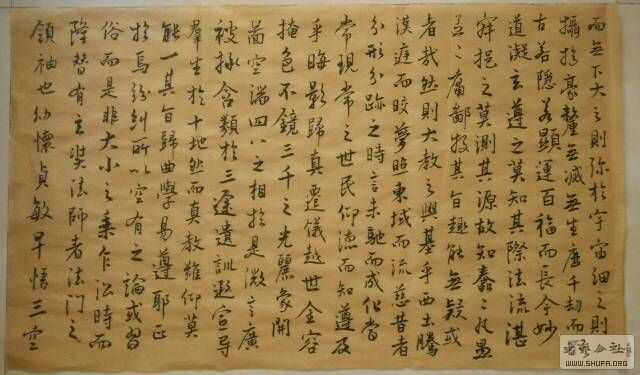 而無下大之則弥於宇宙細之則
攝於豪釐無滅無生歷千劫而
古若隱若顯運百福而長今妙
道凝玄遵之莫知其際法流湛
寂挹之莫測其源故知蠢々凡愚
區々庸鄙投其旨趣能無疑或
者哉然則大教之興基乎西土騰
漢庭而皎夢照東域而流慈昔者
分形分跡之時言未馳而成化當
常現常之世民仰德而知遵及
乎晦影歸真遷儀越世金容
掩色不鏡三千之光麗象開
圖空端四八之相於是微言廣
被拯含類於三途遺訓遐宣導
羣生於十地然而真教難仰莫
能一其旨歸曲學易遵耶正
於焉紛糾所以空有之論或習
俗而是非大小之乘乍沿時而
隆替有玄奘法師者法門之
領袖也幼懷貞敏早悟三空
WWW.SHUFA.ORG